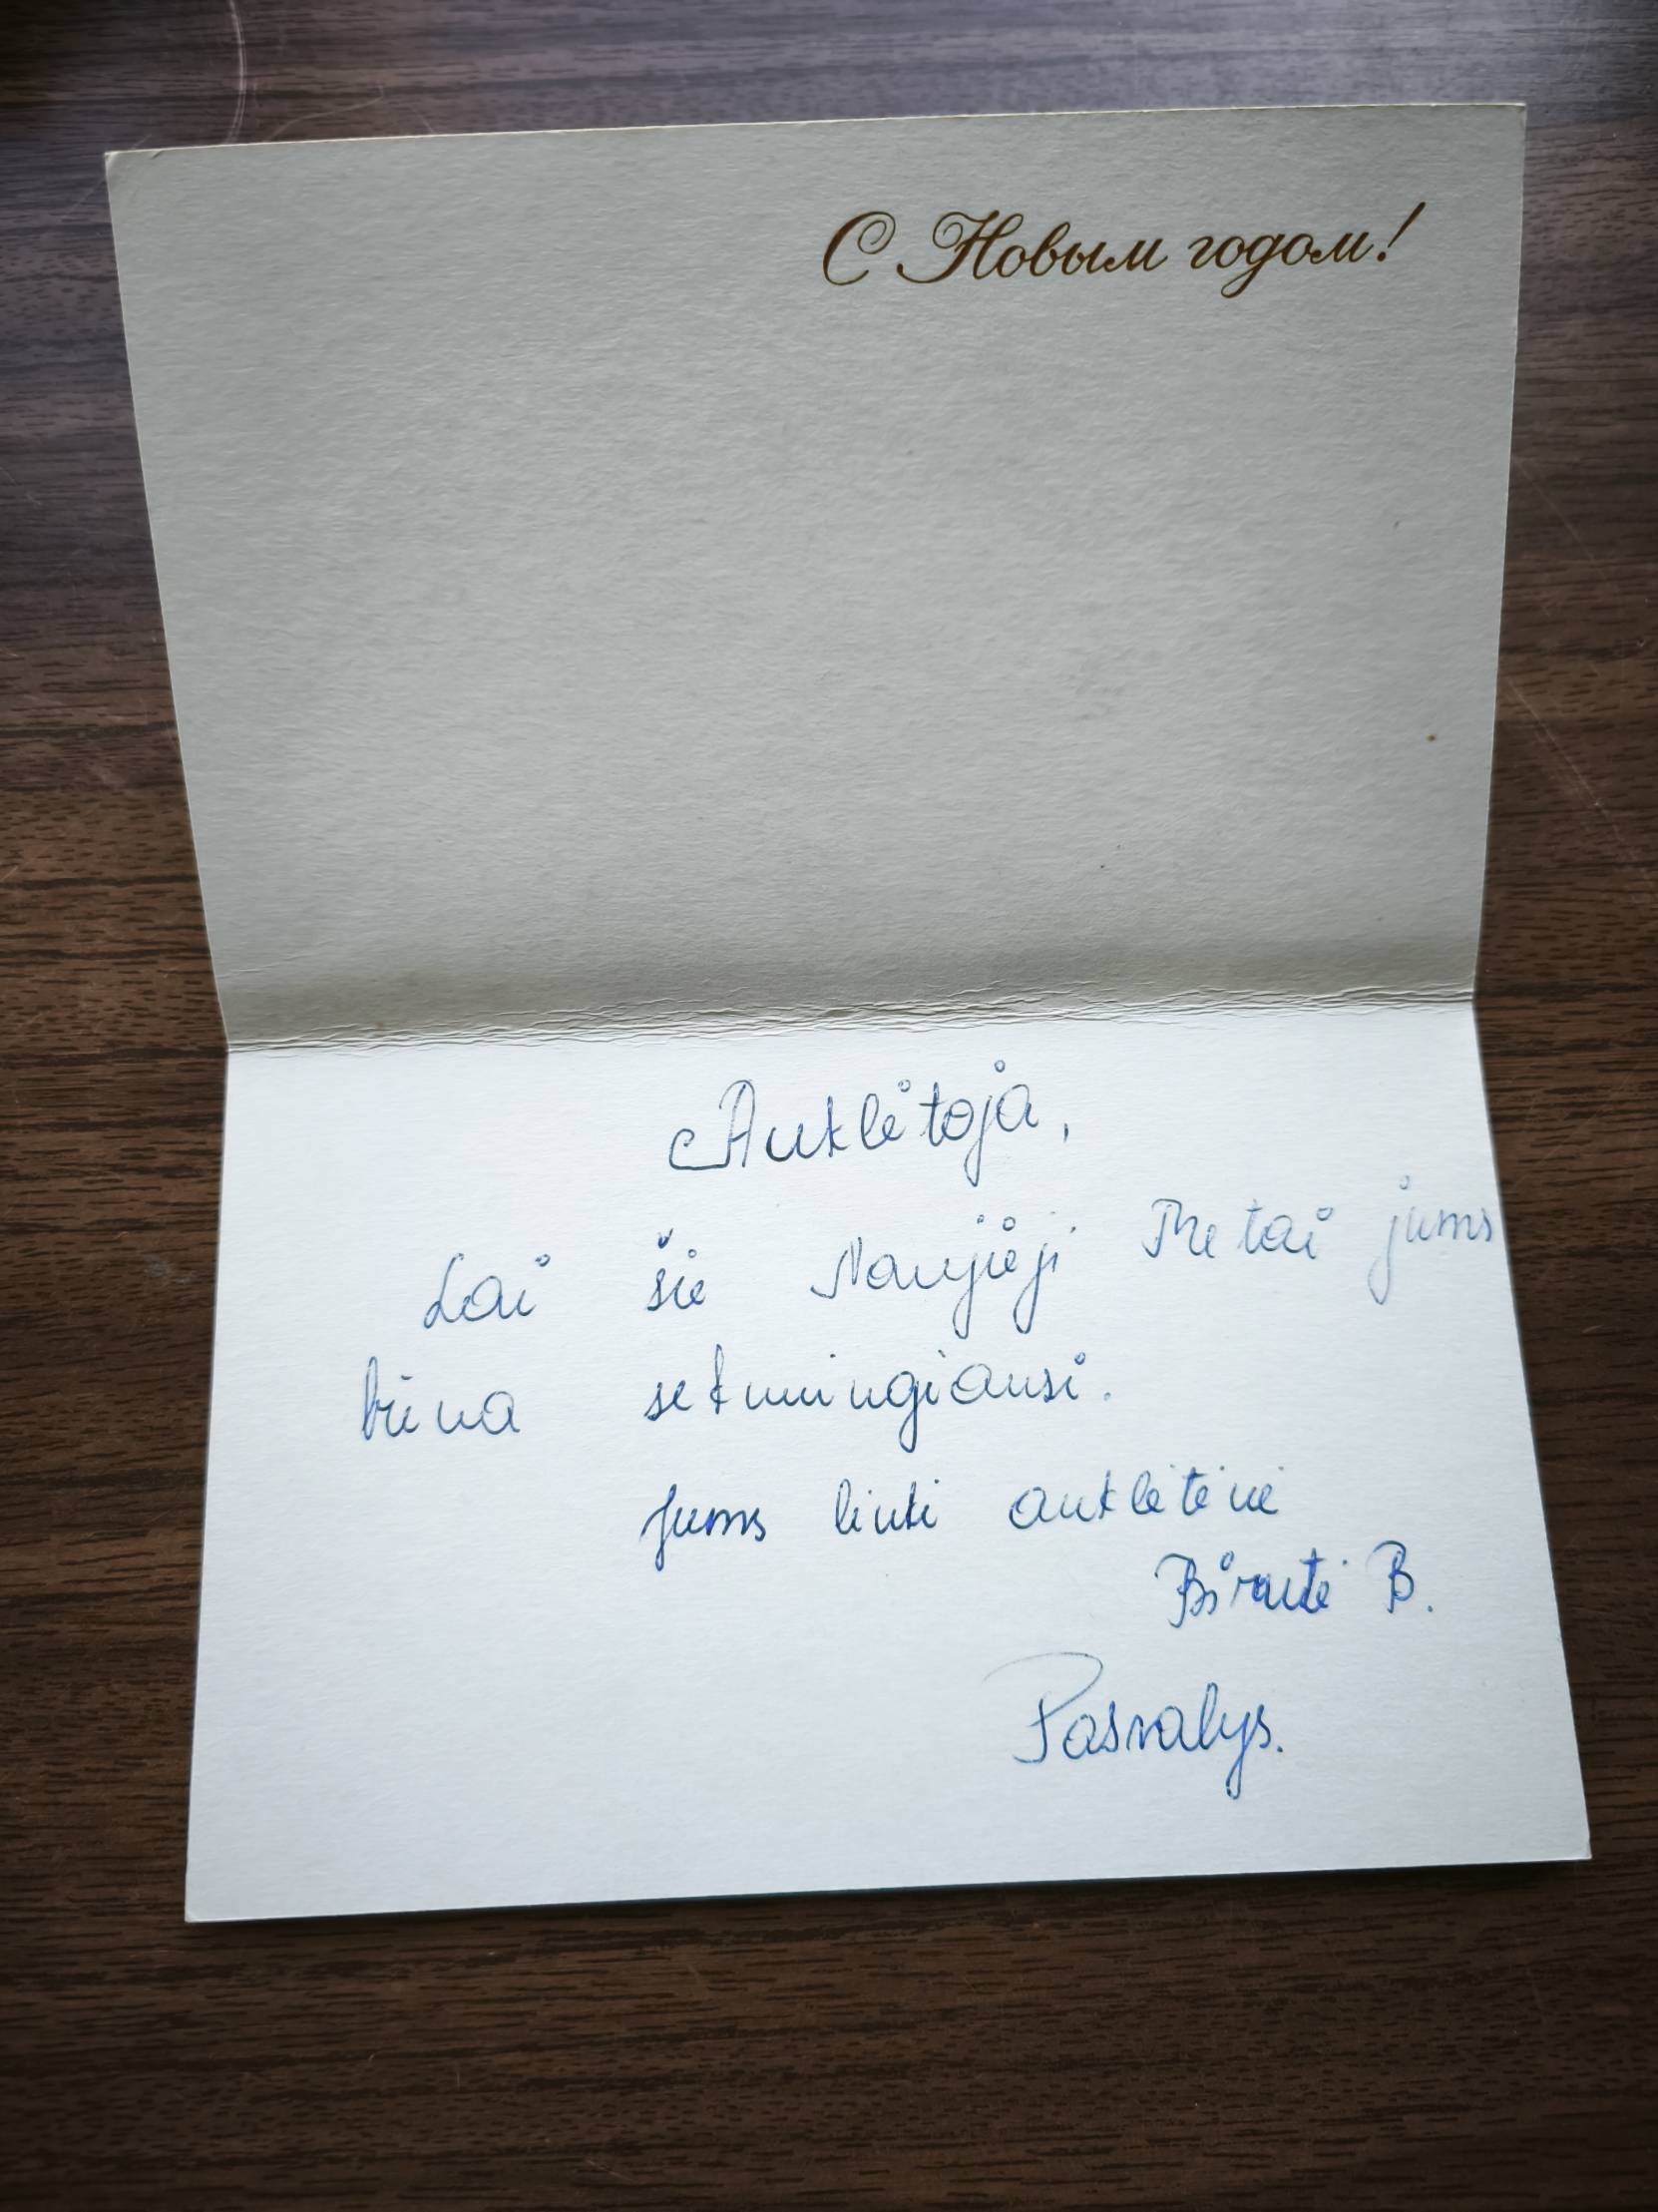 С Новым годом!
Auklėtoja,
Lai šie Naujieji Metai jums
būna sekmingiausi.
Jums linki auklėtinė
Birutė B.
Pasvalys.